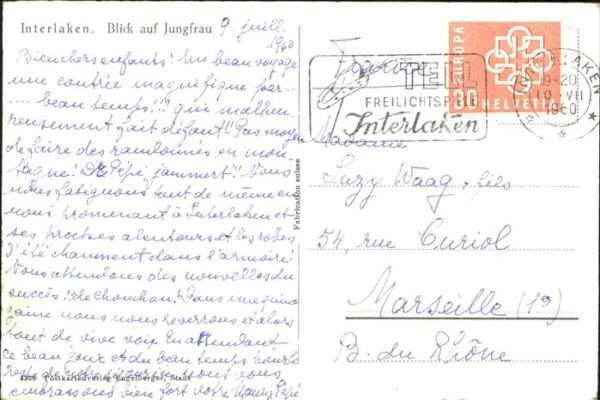 Interlaken. Blick auf Jungfrau
9 juill.
1960
Bien chers enfants! Un beau voyage
une contrée magnifique par
beau temps!!! qui malheu
reusement fait défaut!! Pas moyen
de faire des randonnées en mon
tagne! Pépé jammert! Nous
nous fatiguons tout de même en
nous promenant à Interlaken et
ses proches alentours et les robes
d'été chamment dans l'armoire!
Nous attendons des nouvelles du
succès! de Chouchou! Dans une quin
zaine nous nous reverrons et alors
tout de vive voix. En attendant
ce beau jour et du beau temps pour le
reste de notre nous vous
embrassons bien fort votre Pépé
4208 Postkartenverlag Engelberger, Stans
Fabrication suisse
France
TELL
FREILICHTSPIELE
Interlaken
EUROPA
20
HELVETIA
INTERLAKEN
19-20
10.VII
1960
Madame
Suzy Waag, fils
54, rue Curiol
Marseille (1er)
B. du Rhône